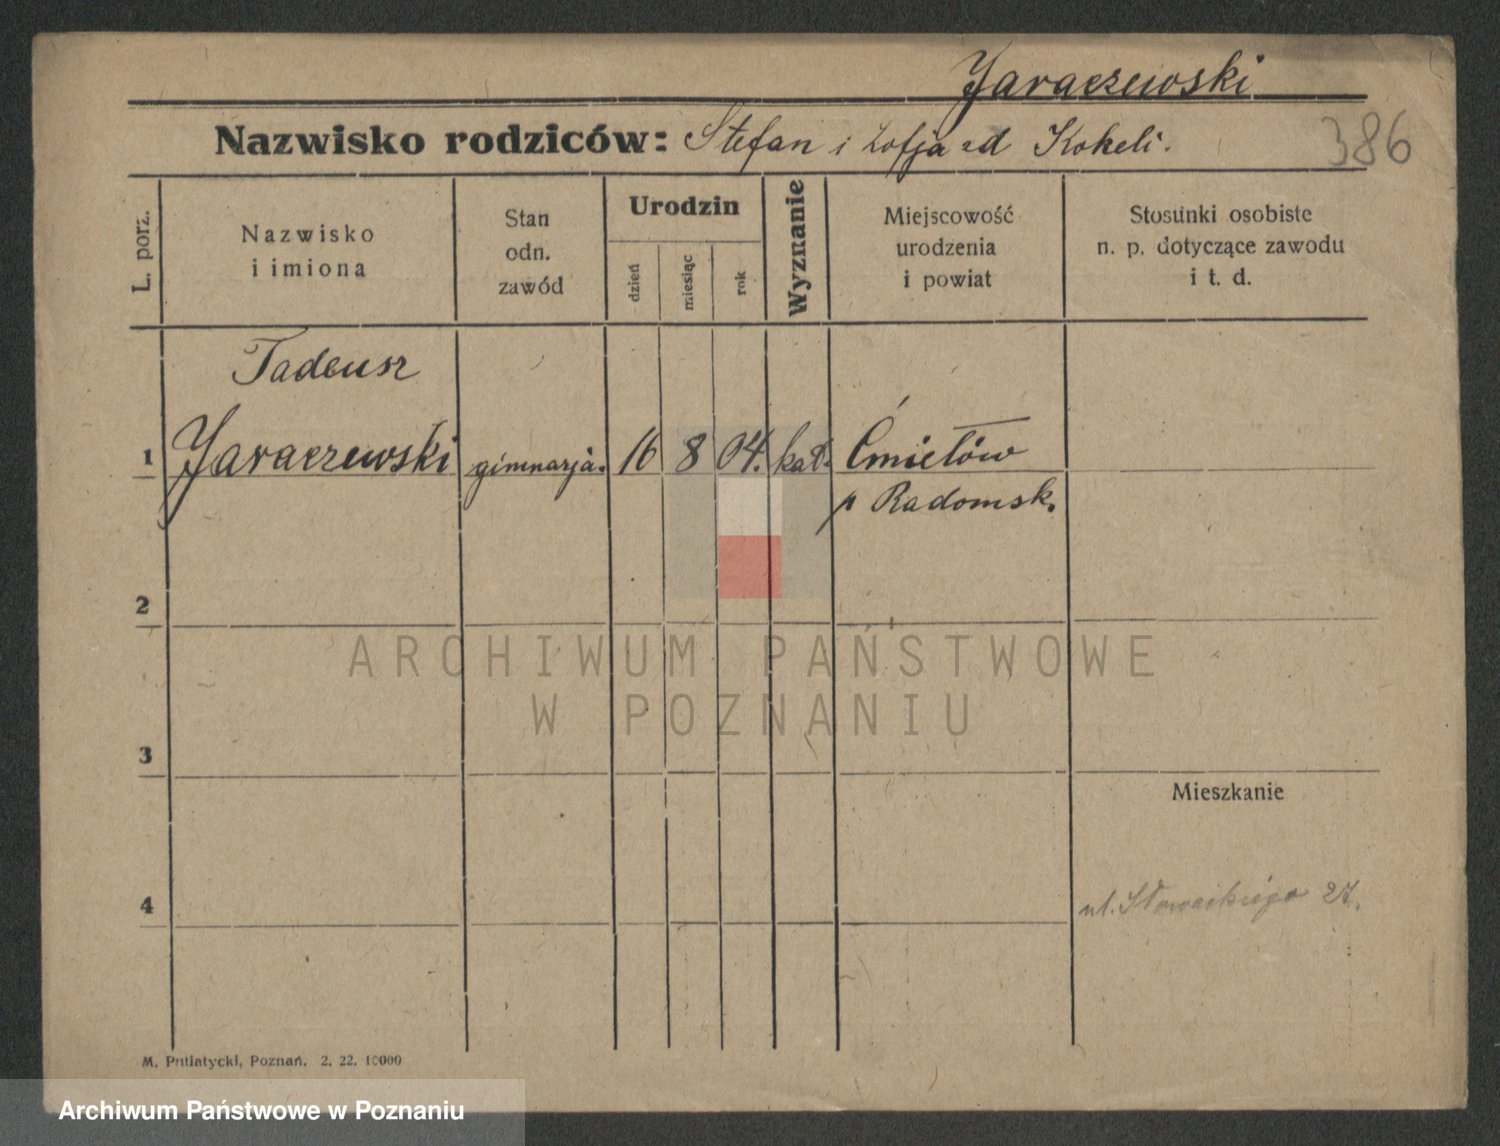 Jaraczewski
Nazwisko rodziców: Stefan i Zofja zd Kokeli.
386
L. porz.
Nazwisko
i imiona
Stan
odn.
zawód
Urodzin
dzień
miesiąc
rok
Wyznanie
Miejscowość
urodzenia
i powiat
Stosunki osobiste
n. p. dotyczące zawodu
i t. d.
Tadeusz
1 Jaraczewski gimnazja. 16 8 04. kat. Ćmielów
p Radomsk.
2
ARCHIWUM PAŃSTWOWE
W POZNANIU
3
Mieszkanie
4
ul. Słowackiego 27.
M. Putiatycki, Poznań. 2. 22. 10000
Archiwum Państwowe w Poznaniu